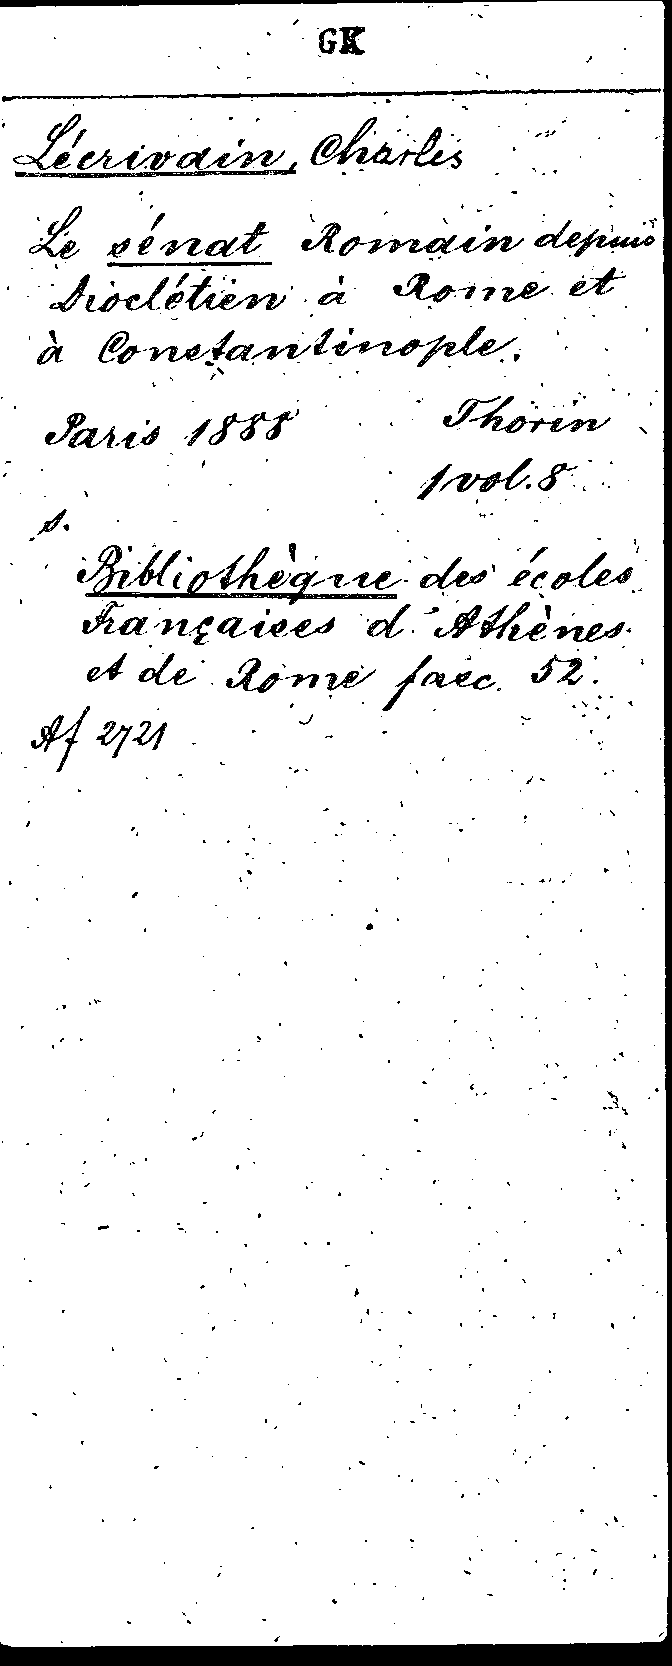 GK
Lécrivain, Charles
Le sénat Romain depuis
Dioclétien à Rome et
à Constantinople.
Paris 1888 Thorin
1 vol. 8
s.
Bibliothèque des écoles
Françaises d'Athènes
et de Rome fasc. 52.
Af 2721